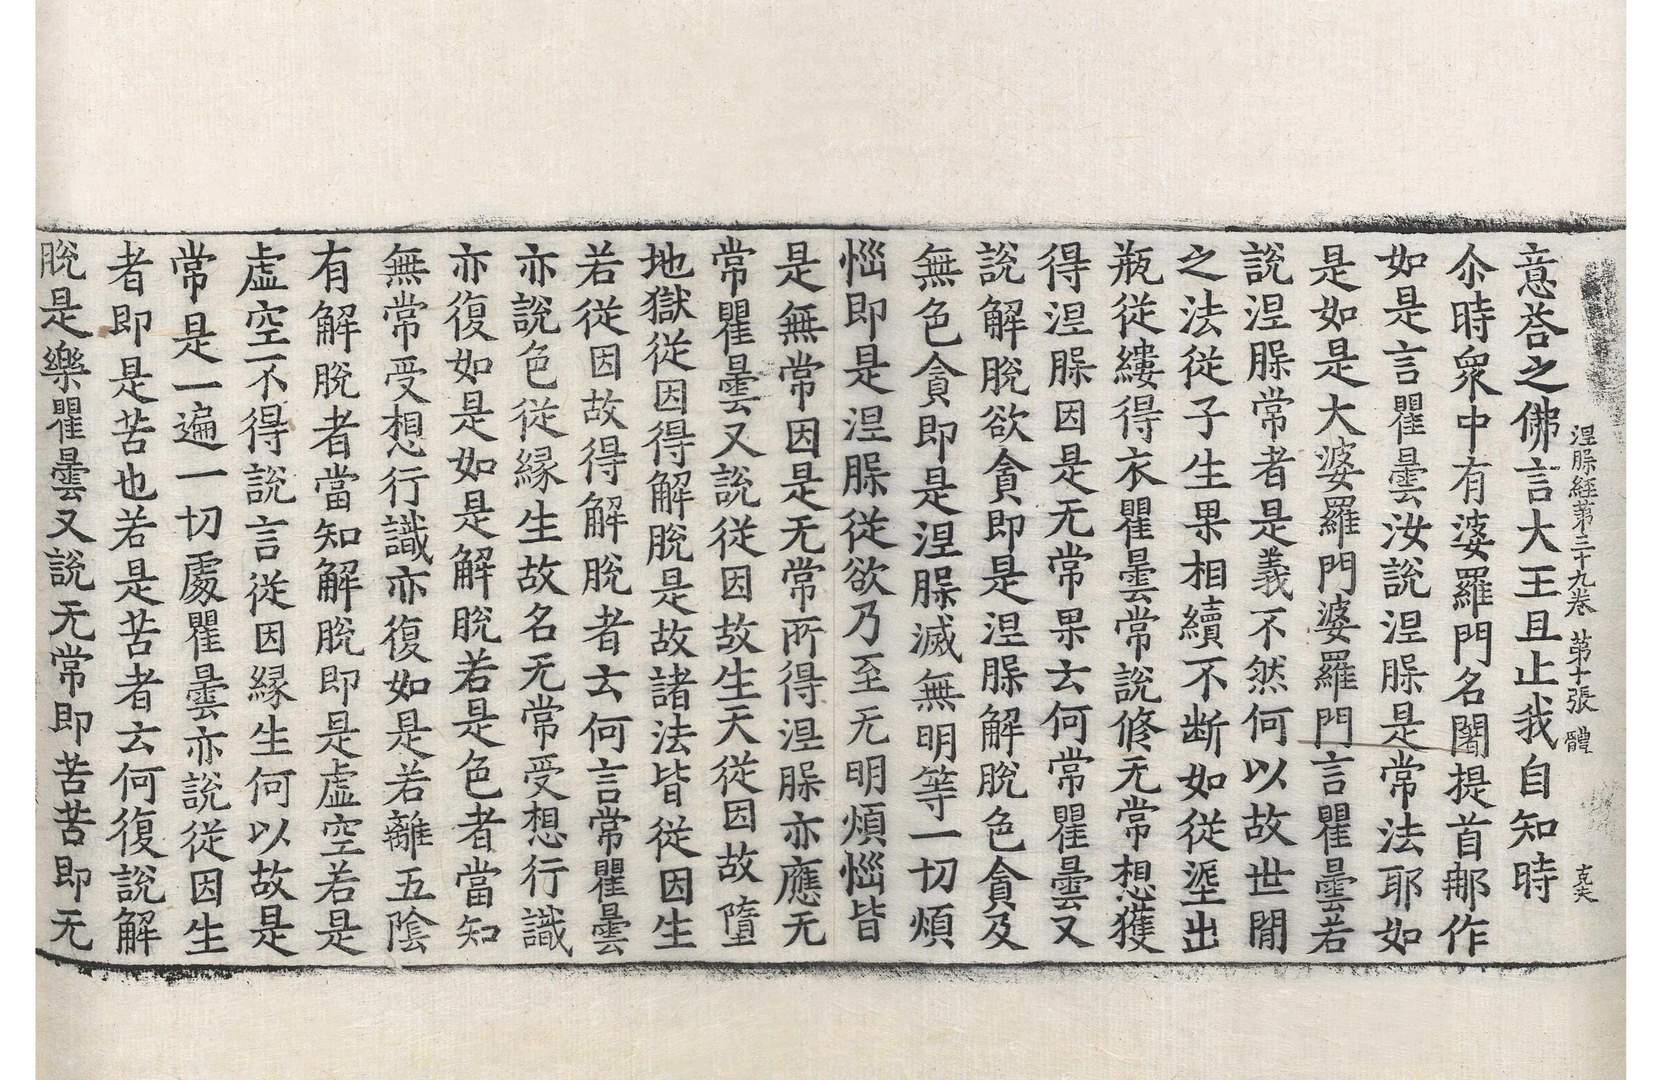 涅𣵀經第三十九卷 第十張 體 克夫
意荅之佛言大王且止我自知時
尒時衆中有婆羅門名闍提首𨚗作
如是言瞿曇汝說涅𣵀是常法耶如
是如是大婆羅門婆羅門言瞿曇若
說涅𣵀常者是義不然何以故世閒
之法從子生果相續不断如從埿出
瓶從縷得衣瞿曇常說修无常想獲
得涅𣵀因是无常果云何常瞿曇又
說解脫欲貪即是涅𣵀解脫色貪及
無色貪即是涅𣵀滅無明等一切煩
惱即是涅𣵀從欲乃至无明煩惱皆
是無常因是无常所得涅𣵀亦應无
常瞿曇又說從因故生天從因故墮
地獄從因得解脫是故諸法皆從因生
若從因故得解脫者云何言常瞿曇
亦說色從縁生故名无常受想行識
亦復如是如是解脫若是色者當知
無常受想行識亦復如是若離五陰
有解脫者當知解脫即是虛空若是
虛空不得說言從因縁生何以故是
常是一遍一切處瞿曇亦說從因生
者即是苦也若是苦者云何復說解
脫是樂瞿曇又說无常即苦苦即无